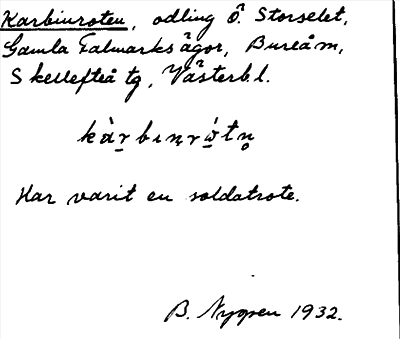 Karbinroten, odling ö. Storselet,
Gamla Falmarksågor, Bureå m,
Skellefteå tg, Västerb. l.
kàrbinrótn̥
Har varit en soldatrote.
B. Nygren 1932.